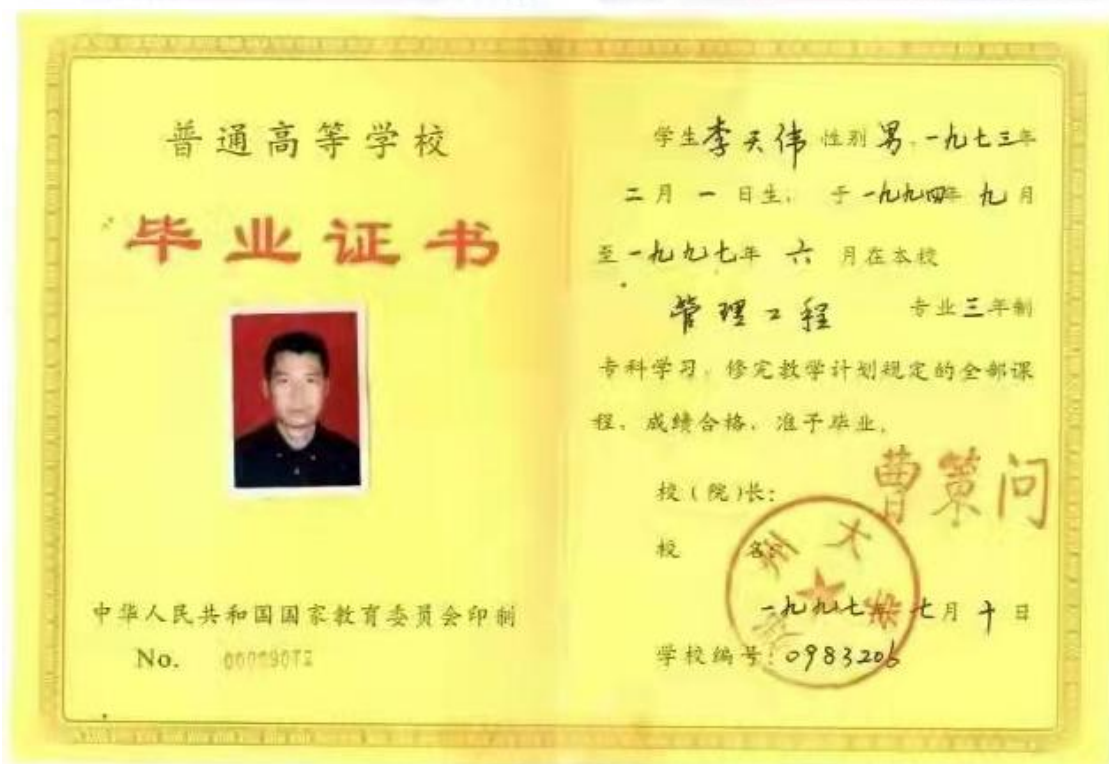 普通高等学校
毕业证书
中华人民共和国国家教育委员会印制
No.
学生李天伟 性别男，一九七三年
二月一日生，于一九九四年九月
至一九九七年六月在本校
管理工程 专业三年制
专科学习，修完教学计划规定的全部课
程，成绩合格，准予毕业。
校（院）长：曹策问
校 名：
郑州大学
一九九七年七月十日
学校编号：0983206